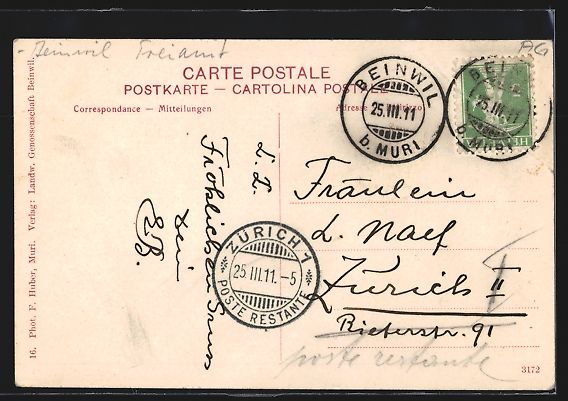 Beinwil Freiamt
AG
CARTE POSTALE
POSTKARTE — CARTOLINA POSTALE
Correspondance — Mitteilungen
BEINWIL
25.III.11
b. MURI
BEINWIL
25.III.11
b. MURI
HEL
L. L.
Fröhlichen Gruss
Dein
E.B.
ZÜRICH 1
25.III.11.-5
POSTE RESTANTE
Fräulein
L. Naef
Zürich II
Rieterstr. 91
poste restante
3172
16. Phot. F. Huber, Muri. Verlag: Landw. Genossenschaft Beinwil.